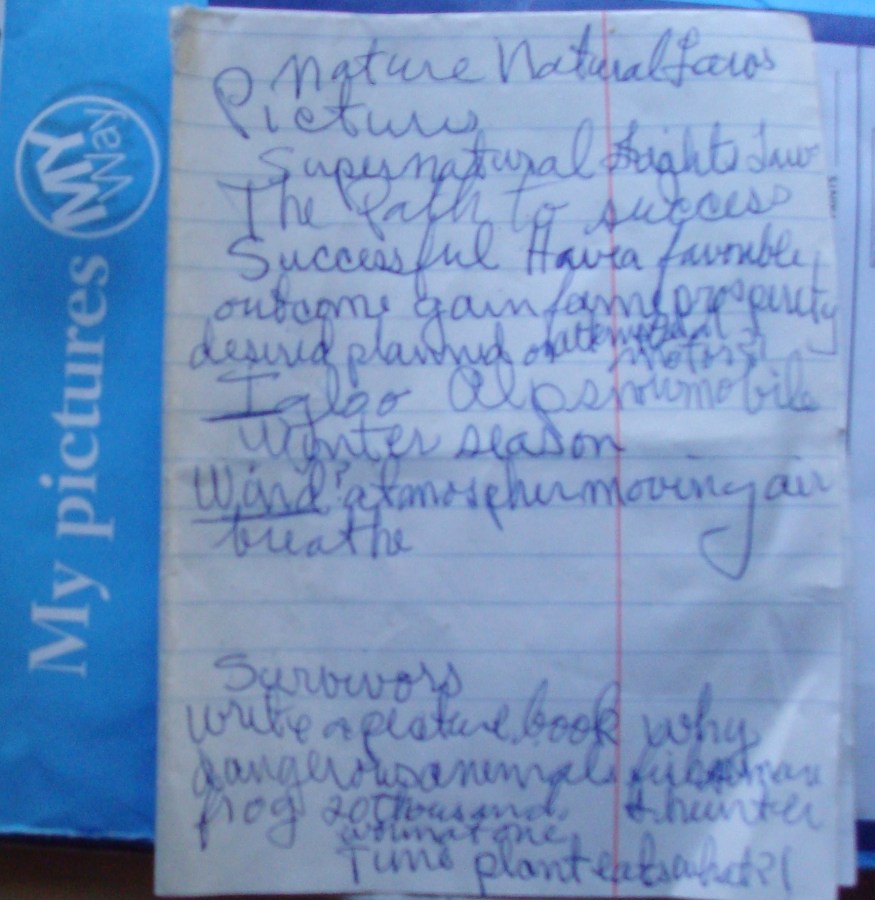 MY
Way
My pictures
Nature Natural Laws
Pictures
Supernatural Law
The Path to success
Successful Have a favorable
outcome gain fame prosperity
desired planned or attempted
motors
Igloo Alp snowmobile
Winter season
Wind? atmospher moving air
breathe
Survivors
write a picture book why
dangerous
frog 20 thousand & hunter
at one
Time plant eats what?